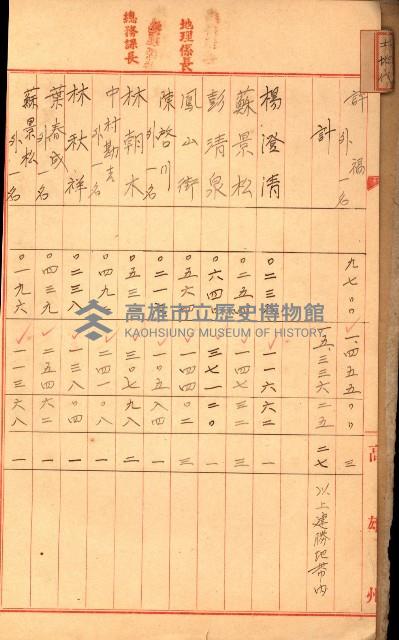 土地代
地理係長
總務課長
許福 外一名 九七〇〇 一、四五五〇〇 三
計 一五、三三六二五 二七 以上建勝地帶內
楊澄清 一一六六二 一
蘇景松 一四七三二 三
彭清泉 〇六四 三七一二〇 一
鳳山街 〇五六〇 一四四〇二 三
陳啓川 外一名 一
林朝木 三〇七九八 二
中村勘吉 外一名 〇四九 二四一〇八 一
林秋祥 〇二三八 一三八〇四 一
葉春成 外一名 〇四三九 二五四六二 一
蘇景松 外一名 〇一九六 一一三六八 一
高雄州
高雄市立歷史博物館
KAOHSIUNG MUSEUM OF HISTORY